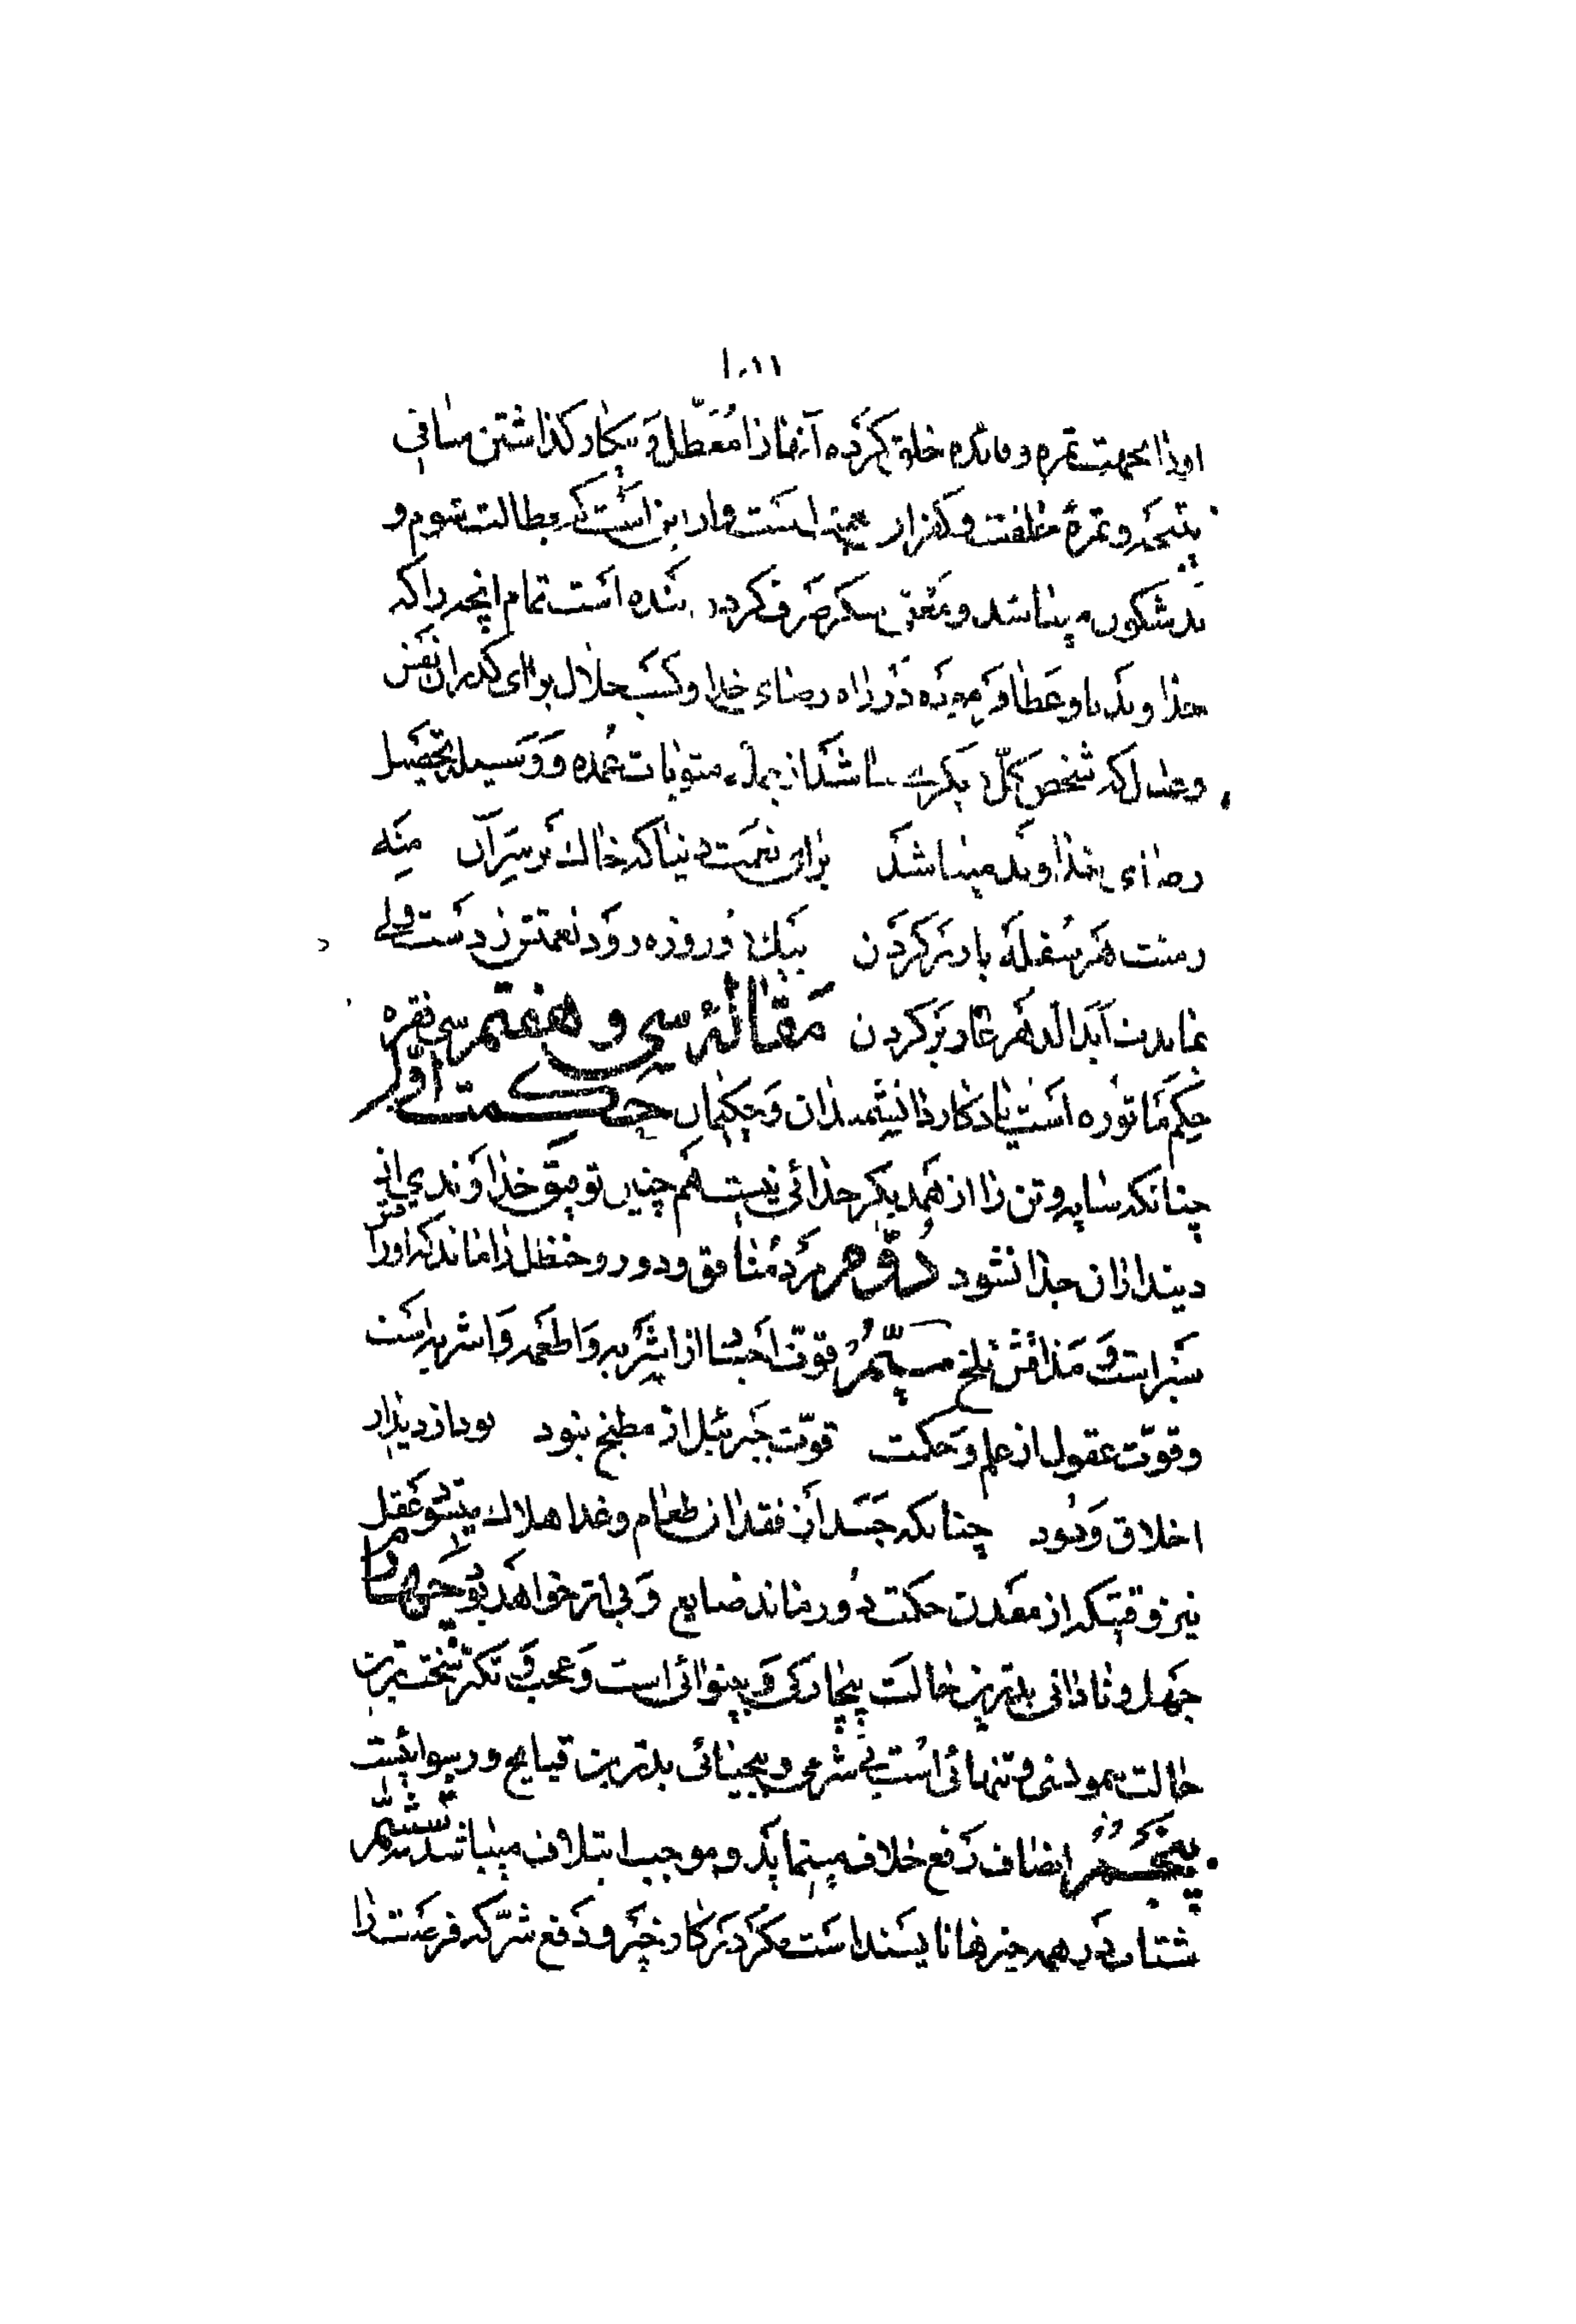 ۱۰۱۱
او را بجهت ثمره و فائده خلق کرده آنها را معطل و بیکار گذاشتن منافی
نتیجه و ثمرهٔ خلقت و این است که بطالت شوم و
بدشگون میباشد و شکر صرف کردن بنده است تمام انچه را که
خداوند باو عطا فرموده در راه رضاء خدا و کسب حلال برای گذران نفس
و عیال که شخص کلّ بر دیگری نباشد از جمله مثوبات عمده و وسیلهٔ تحصیل
رضاء خداوند میباشد برای نعمت دنیا که خاک بر سر آن منه
ز منت هر سفله بار بر گردن بیک دو روزه رود نعمتش ز دست ولی
بماندت ابد الدهر عار بر گردن مقالهٔ سی و هفتم سی فقره
حکم ماثوره است یادگار دانشمندان و حکیمان حکمت اوّل
چنانکه سایه و تن را از همدیگر جدائی نیست هم چنین توفیق خداوندی از
دینداران جدا نشود دوّم مرد منافق و دورو حنظل را ماند که اوراقش
سبز است و مذاقش تلخ سیّم قوّت اجساد از اشربه و اطعمه و اشربه است
و قوّت عقول از علم و حکمت قوّت جبرئیل از مطبخ نبود بود از دیدار
خلاق ودود چنانکه جسد از فقدان طعام و غذا هلاک میشود عقل
نیز وقتیکه از معدن حکمت دور ماند ضایع و بی اثر خواهد بود چهارم
جهل و نادانی بدترین حالت بیچارگی و بینوائی است و عجب و تکبّر سخت ترین
حالت بیمونسی و تنهائی است بی شرمی و بیحیائی بدترین قبایح و رسوائیست
پنجم انصاف دفع خلاف مینماید و موجب ائتلاف میباشد ششم
شتاب در همه چیزها ناپسند است مگر در کار خیر و دفع شرّ که فرصت را